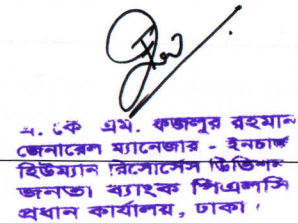 এ. কে এম. ফজলুর রহমান
জেনারেল ম্যানেজার - ইনচার্জ
হিউম্যান রিসোর্সেস ডিভিশন
জনতা ব্যাংক পিএলসি
প্রধান কার্যালয়, ঢাকা।